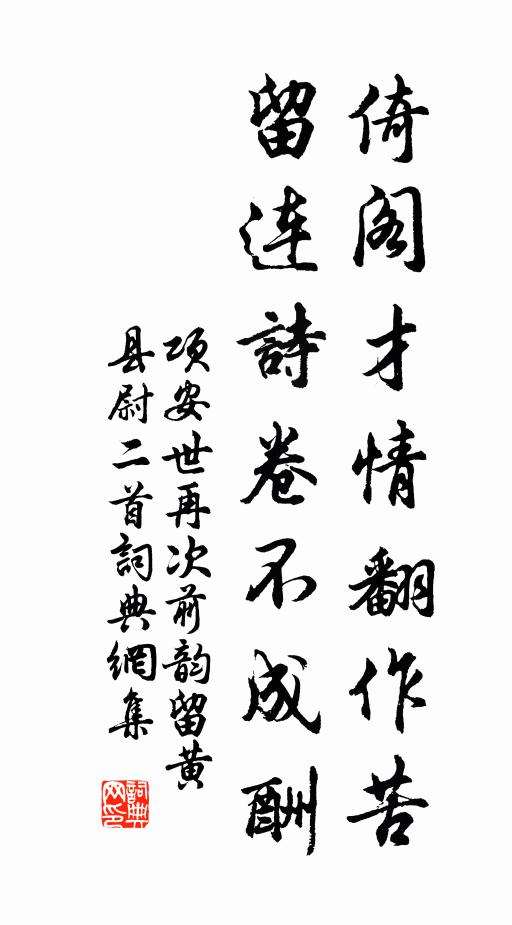 倚阁才情翻作苦
留连詩卷不成酬
项安世再次前韵留黄
县尉二首詞典網集
詞典
网印